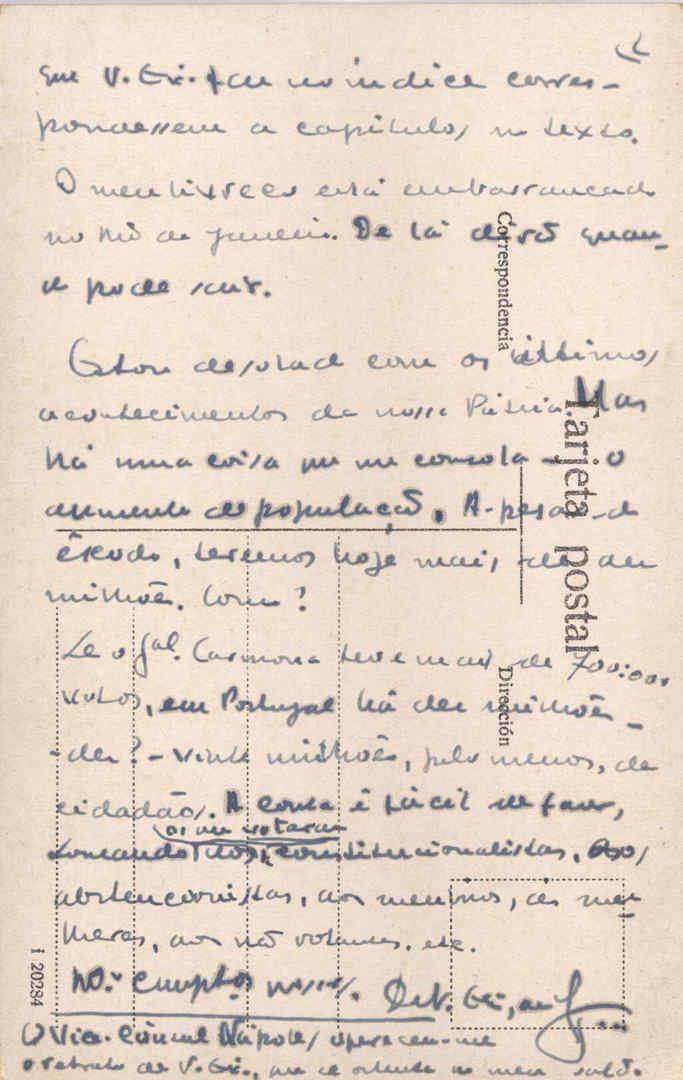 que V. Ex. no indice corres-
pondessem a capitulos no texto.
O meu livreco está embarrancado
no Rio de Janeiro. De lá dirão quan-
do pode sair.
Estou desolado com os ultimos
acontecimentos da nossa Pátria. Mas
há uma coisa que me consola - o
aumento de população. A-pesar-do
êxodo, teremos hoje mais de dez
milhões. Como?
Se o Gal. Carmona teve mais de 700:000
votos, em Portugal há dez milhões -
- dez? - vinte milhões, pelo menos, de
cidadãos. A conta é fácil de fazer,
os que votaram
somando constitucionalistas, aos
abstencionistas, aos meninos, ás mu-
lheres, aos não votantes, etc.
De V. Ex.,
O Vice-Cônsul Nápoles ofereceu-me
o retrato de V. Ex., que se ostenta no meu salão.
Correspondencia
Tarjeta postal
Dirección
1 20284